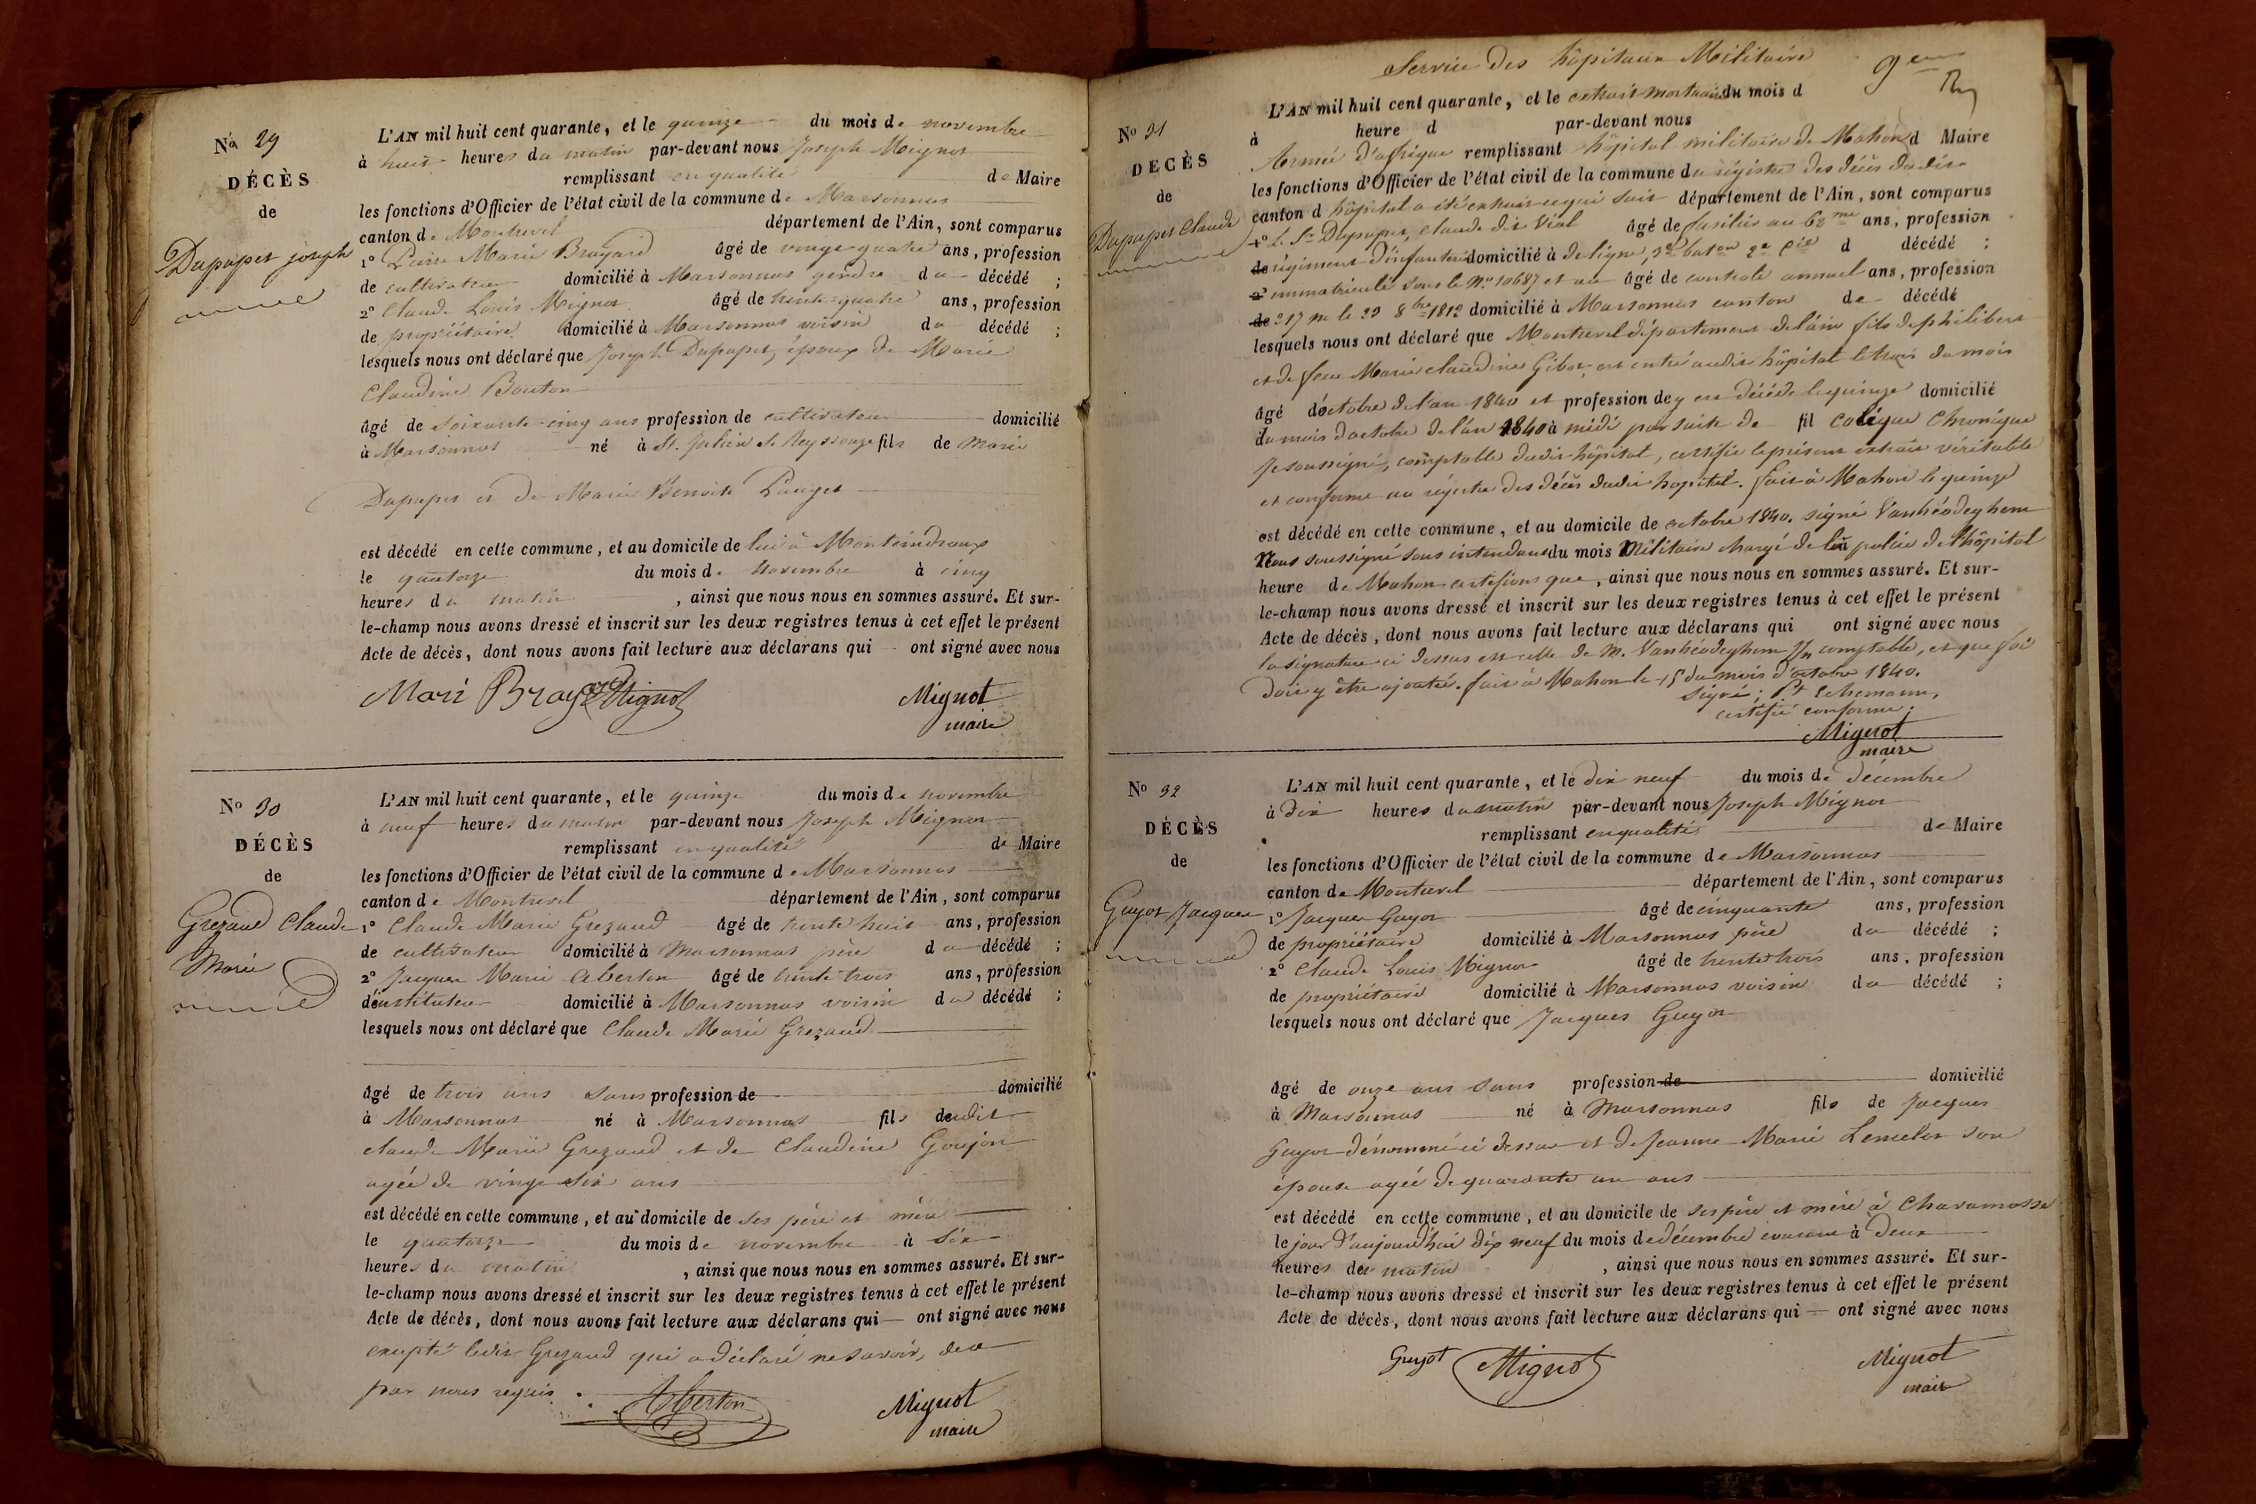 Nº 29
DÉCÈS
de
Dupupet joseph
L'AN mil huit cent quarante, et le quinze du mois de novembre
à huit heures du matin par-devant nous Joseph Mignot
remplissant en qualité de Maire
les fonctions d'Officier de l'état civil de la commune de Marsonnas
canton de Montrevel département de l'Ain, sont comparus
1º Marie Brayard âgé de vingt quatre ans, profession
de cultivateur domicilié à Marsonnas gendre du décédé ;
2º Claude Louis Mignot âgé de trente quatre ans, profession
de propriétaire domicilié à Marsonnas voisin du décédé ;
lesquels nous ont déclaré que Joseph Dupupet, époux de Marie
Claudine Bouton
âgé de soixante-cinq ans profession de cultivateur domicilié
à Marsonnas né à St. Julien s/ Reyssouze fils de Marie
Dupupet et de Marie Benoite Pauget
est décédé en cette commune, et au domicile de lui à
le quatorze du mois de novembre à cinq
heures du matin , ainsi que nous nous en sommes assuré. Et sur-
le-champ nous avons dressé et inscrit sur les deux registres tenus à cet effet le présent
Acte de décès, dont nous avons fait lecture aux déclarans qui ont signé avec nous
Mari Brayard Mignot Mignot
maire
Nº 30
DÉCÈS
de
Grezaud Claude
Marie
L'AN mil huit cent quarante, et le quinze du mois de novembre
à neuf heures du matin par-devant nous Joseph Mignot
remplissant en qualité de Maire
les fonctions d'Officier de l'état civil de la commune de Marsonnas
canton de Montrevel département de l'Ain, sont comparus
1º Claude Marie Grezaud âgé de trente huit ans, profession
de cultivateur domicilié à Marsonnas père du décédé ;
2º Jacques Marie Aberton âgé de trente trois ans, profession
d'instituteur domicilié à Marsonnas voisin du décédé ;
lesquels nous ont déclaré que Claude Marie Grezaud
âgé de trois ans sans profession de domicilié
à Marsonnas né à Marsonnas fils dudit
claude Marie Grezaud et de Claudine Goujon
agée de vingt six ans
est décédé en cette commune, et au domicile de ses père et mère
le quatorze du mois de novembre à six
heures du matin , ainsi que nous nous en sommes assuré. Et sur-
le-champ nous avons dressé et inscrit sur les deux registres tenus à cet effet le présent
Acte de décès, dont nous avons fait lecture aux déclarans qui ont signé avec nous
excepté ledit Grezaud qui a déclaré ne savoir, de ce
par nous requis.
Aberton Mignot
maire
Service des hôpitaux Militaire
Nº 31
DECÈS
de
Dupupet Claude
L'AN mil huit cent quarante, et le extrait mortuaire du mois d
à heure d par-devant nous
Armée d'afrique remplissant hôpital militaire de Mahon d Maire
les fonctions d'Officier de l'état civil de la commune du régistre des décès dudit
canton d hôpital a été extrait ce qui suit département de l'Ain, sont comparus
1º Le Sr Dupupet, Claude dit Vial âgé de fusilier au 62me ans, profession
de régiment d'infanterie domicilié à de ligne, 3e baton 2e Cie d décédé ;
2º immatriculé sous le Nº 10687 et au âgé de controle annuel ans, profession
de 317 né le 22 8bre 1812 domicilié à Marsonnas canton de décédé
lesquels nous ont déclaré que Montrevel département de l'ain fils de philibert
et de feue Marie claudine Gibot, est entré audit hôpital le trois du mois
âgé d'octobre de l'an 1840 et profession de y est décédé le quinze domicilié
du mois d'octobre de l'an 1840 à midi par suite de fil colique chronique
Je soussigné, comptable dudit hôpital, certifie le présent extrait véritable
et conforme au régistre des décès dudit hopital. fait à Mahon le quinze
est décédé en cette commune, et au domicile de octobre 1840. signé Vanhéodeghem
Nous soussigné sous intendant du mois Militaire chargé de la police de l'hôpital
heure de Mahon certifions que , ainsi que nous nous en sommes assuré. Et sur-
le-champ nous avons dressé et inscrit sur les deux registres tenus à cet effet le présent
Acte de décès, dont nous avons fait lecture aux déclarans qui ont signé avec nous
la signature ci dessus est celle de M. Vanhéodeghem comptable, et que foi
doit y être ajoutée. fait à Mahon le 15 du mois d'octobre 1840.
signé : Echemann,
certifié conforme.
Mignot
maire
Nº 32
DÉCÈS
de
Guyot Jacques
L'AN mil huit cent quarante, et le dix neuf du mois de décembre
à dix heures du matin par-devant nous Joseph Mignot
remplissant en qualité de Maire
les fonctions d'Officier de l'état civil de la commune de Marsonnas
canton de Montrevel département de l'Ain, sont comparus
1º Jacques Guyot âgé de cinquante ans, profession
de propriétaire domicilié à Marsonnas père du décédé ;
2º Claude Louis Mignot âgé de trente trois ans, profession
de propriétaire domicilié à Marsonnas voisin du décédé ;
lesquels nous ont déclaré que Jacques Guyot
âgé de onze ans sans profession de domicilié
à Marsonnas né à Marsonnas fils de Jacques
Guyot dénommé ci dessus et de Jeanne Marie son
épouse agée de quarante un ans
est décédé en cette commune, et au domicile de ses père et mère à Charamosse
le jour d'aujourd'hui dix neuf du mois de décembre courant à deux
heures du matin , ainsi que nous nous en sommes assuré. Et sur-
le-champ nous avons dressé et inscrit sur les deux registres tenus à cet effet le présent
Acte de décès, dont nous avons fait lecture aux déclarans qui ont signé avec nous
Guyot Mignot Mignot
maire